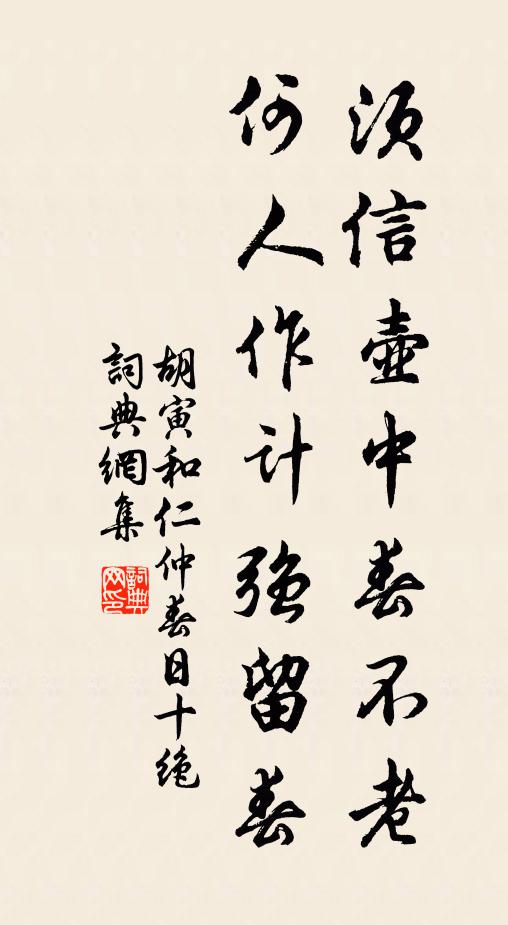 須信壺中春不老
何人作計強留春
胡寅和仁仲春日十絕
詞典網集
詞典
网印